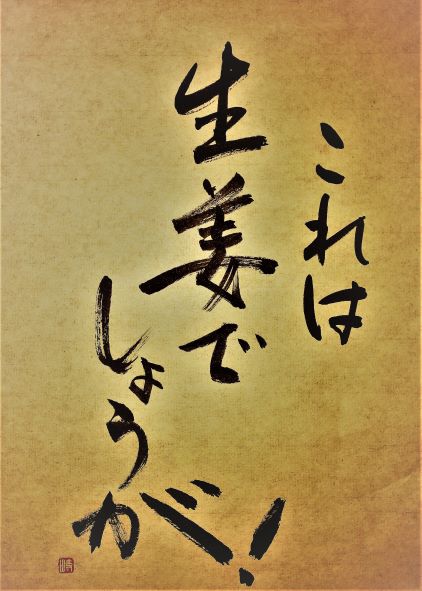 これは
生姜で
しょうが!